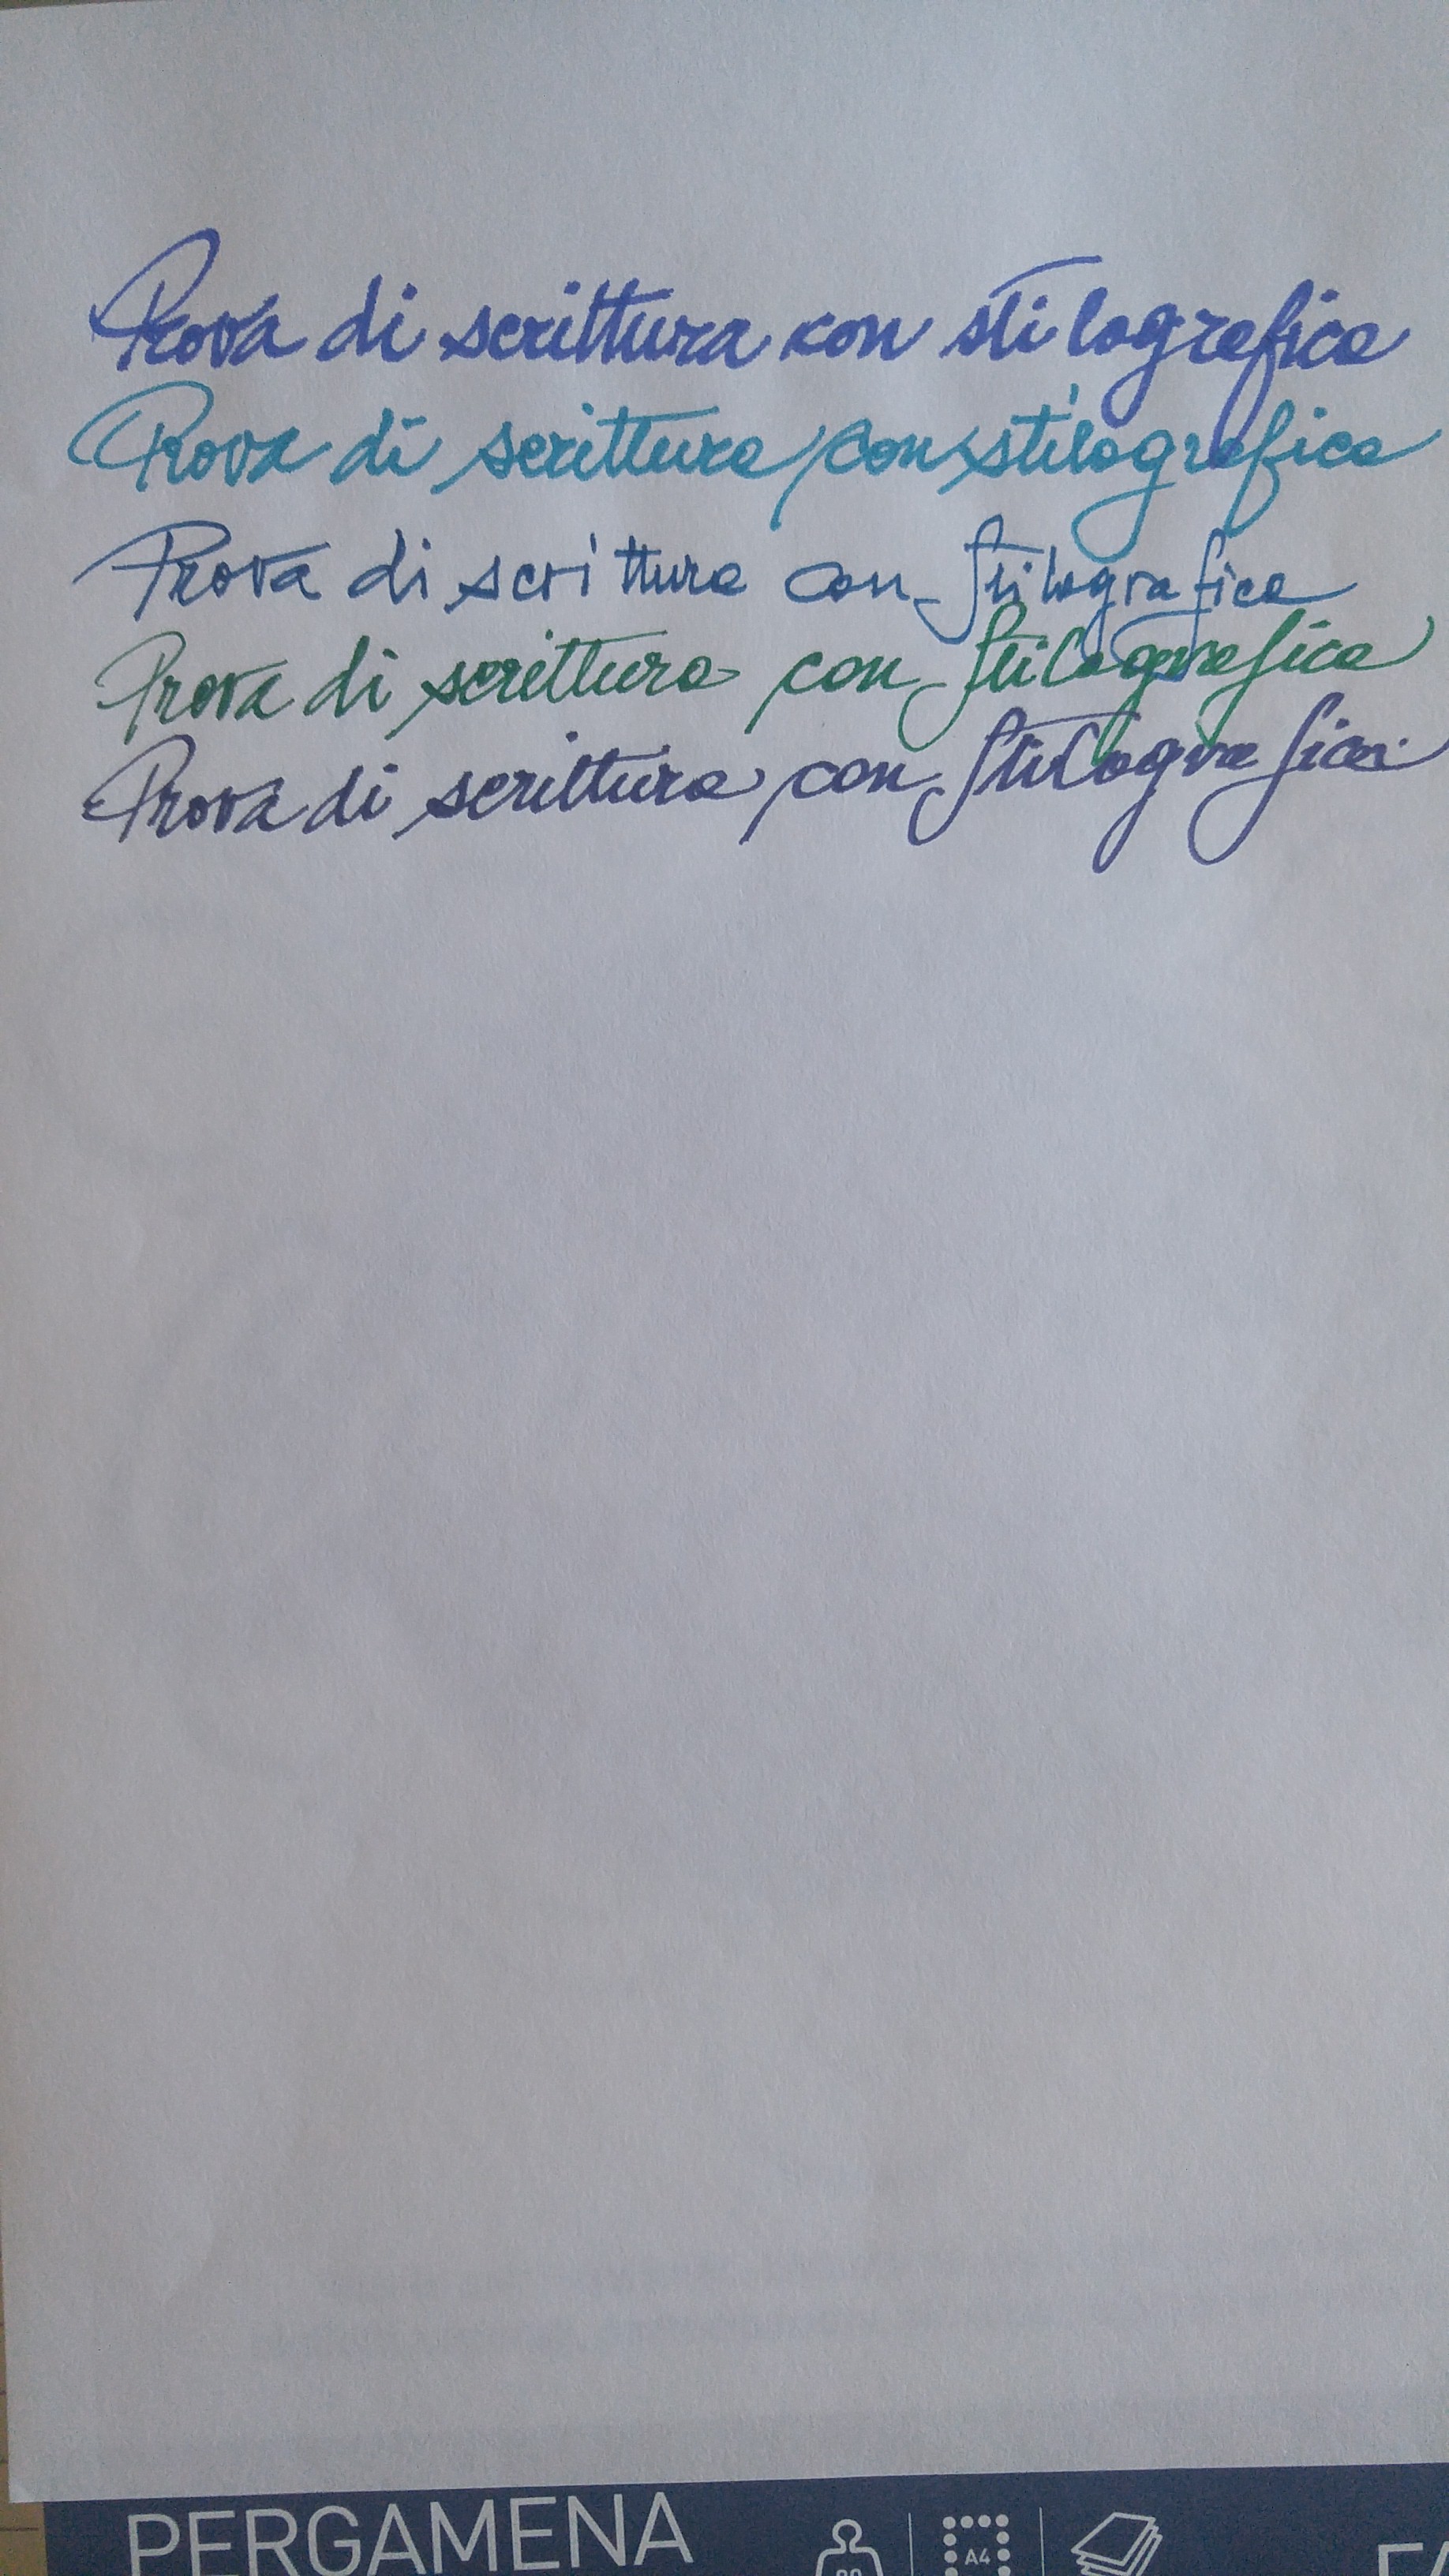 Prova di scrittura con stilografica
Prova di scrittura con stilografica
Prova di scrittura con stilografica
Prova di scrittura con stilografica
Prova di scrittura con stilografica.
PERGAMENA
A4